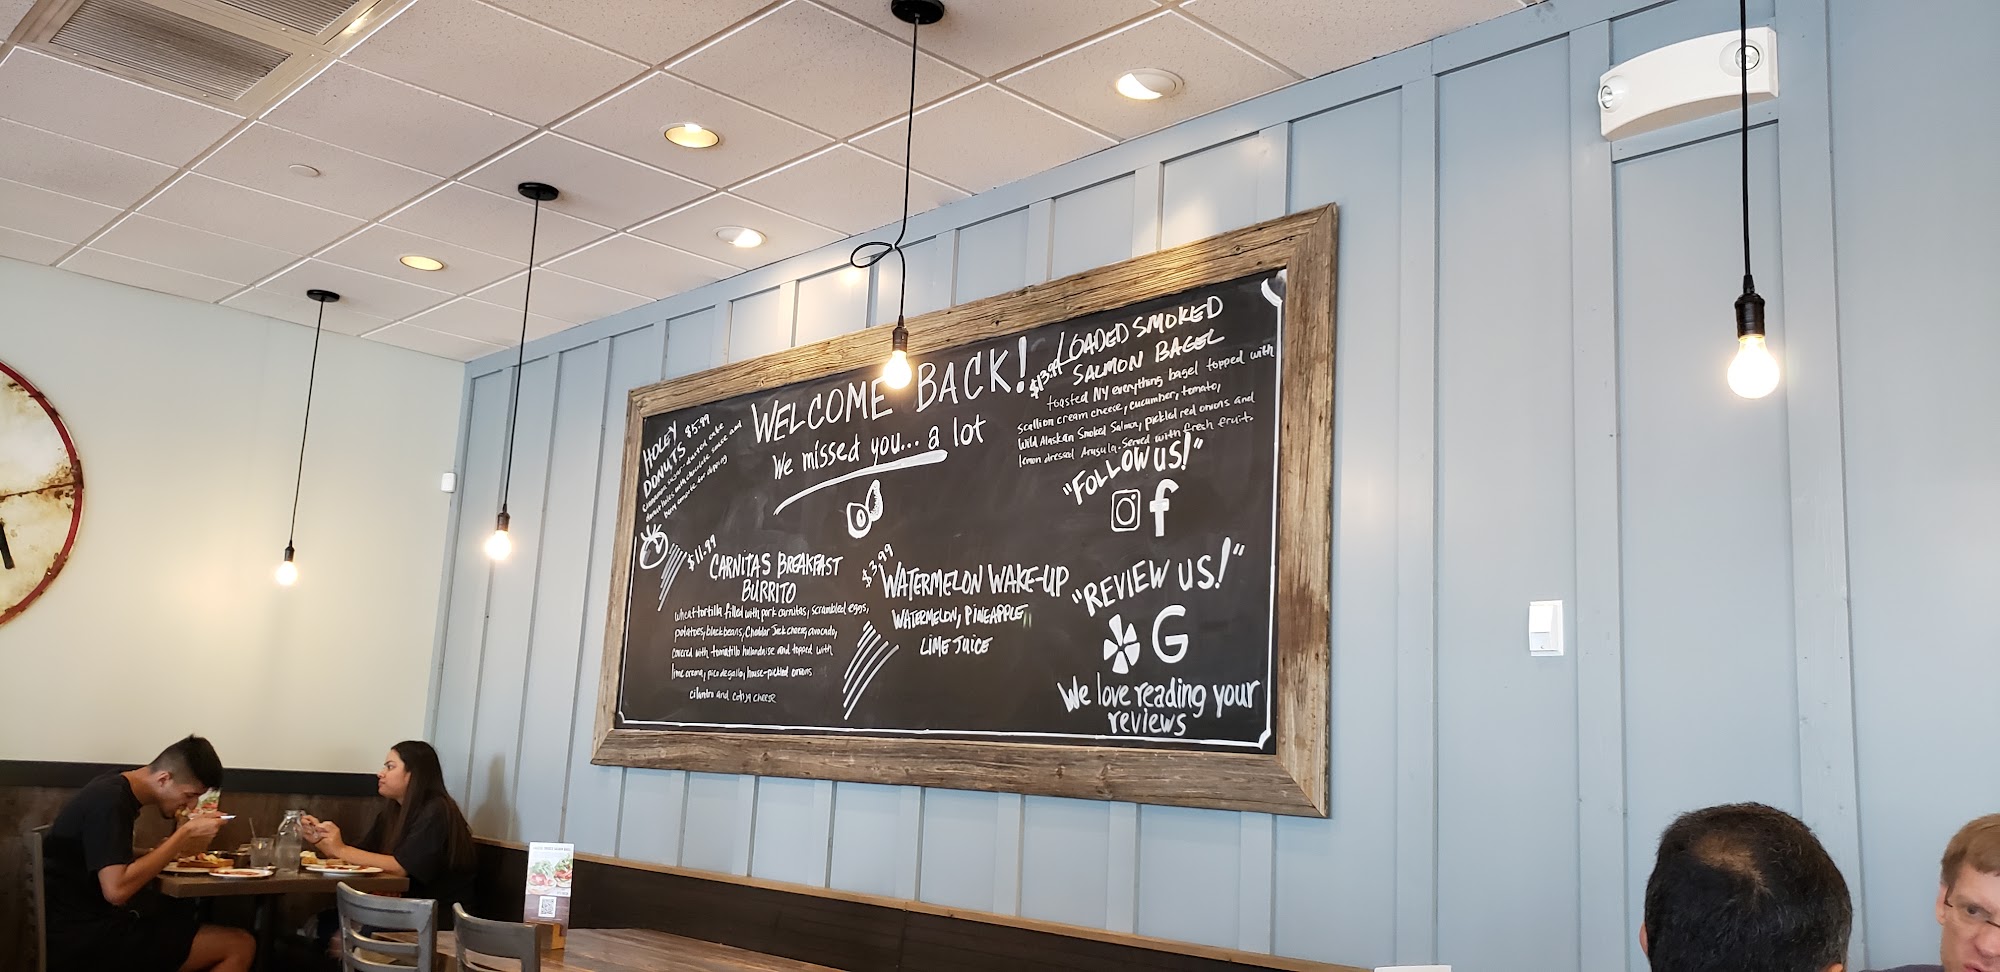 WELCOME BACK!
We missed you... a lot
HOLEY
DONUTS $5.99
cinnamon sugar-dusted cake
donut holes with chocolate sauce and
berry compote for dipping
$13.99 LOADED SMOKED
SALMON BAGEL
toasted NY everything bagel topped with
scallion cream cheese, cucumber, tomato,
Wild Alaskan Smoked Salmon, pickled red onions and
lemon dressed Arugula. Served with fresh fruit.
"FOLLOW US!"
f
$11.99
CARNITAS BREAKFAST
BURRITO
wheat tortilla filled with pork carnitas, scrambled eggs,
potatoes, black beans, Cheddar Jack cheese, avocado,
covered with tomatillo hollandaise and topped with
lime crema, pico de gallo, house-pickled onions
cilantro and cotija cheese
$3.99
WATERMELON WAKE-UP
WATERMELON, PINEAPPLE,
LIME JUICE
"REVIEW US!"
G
We love reading your
reviews